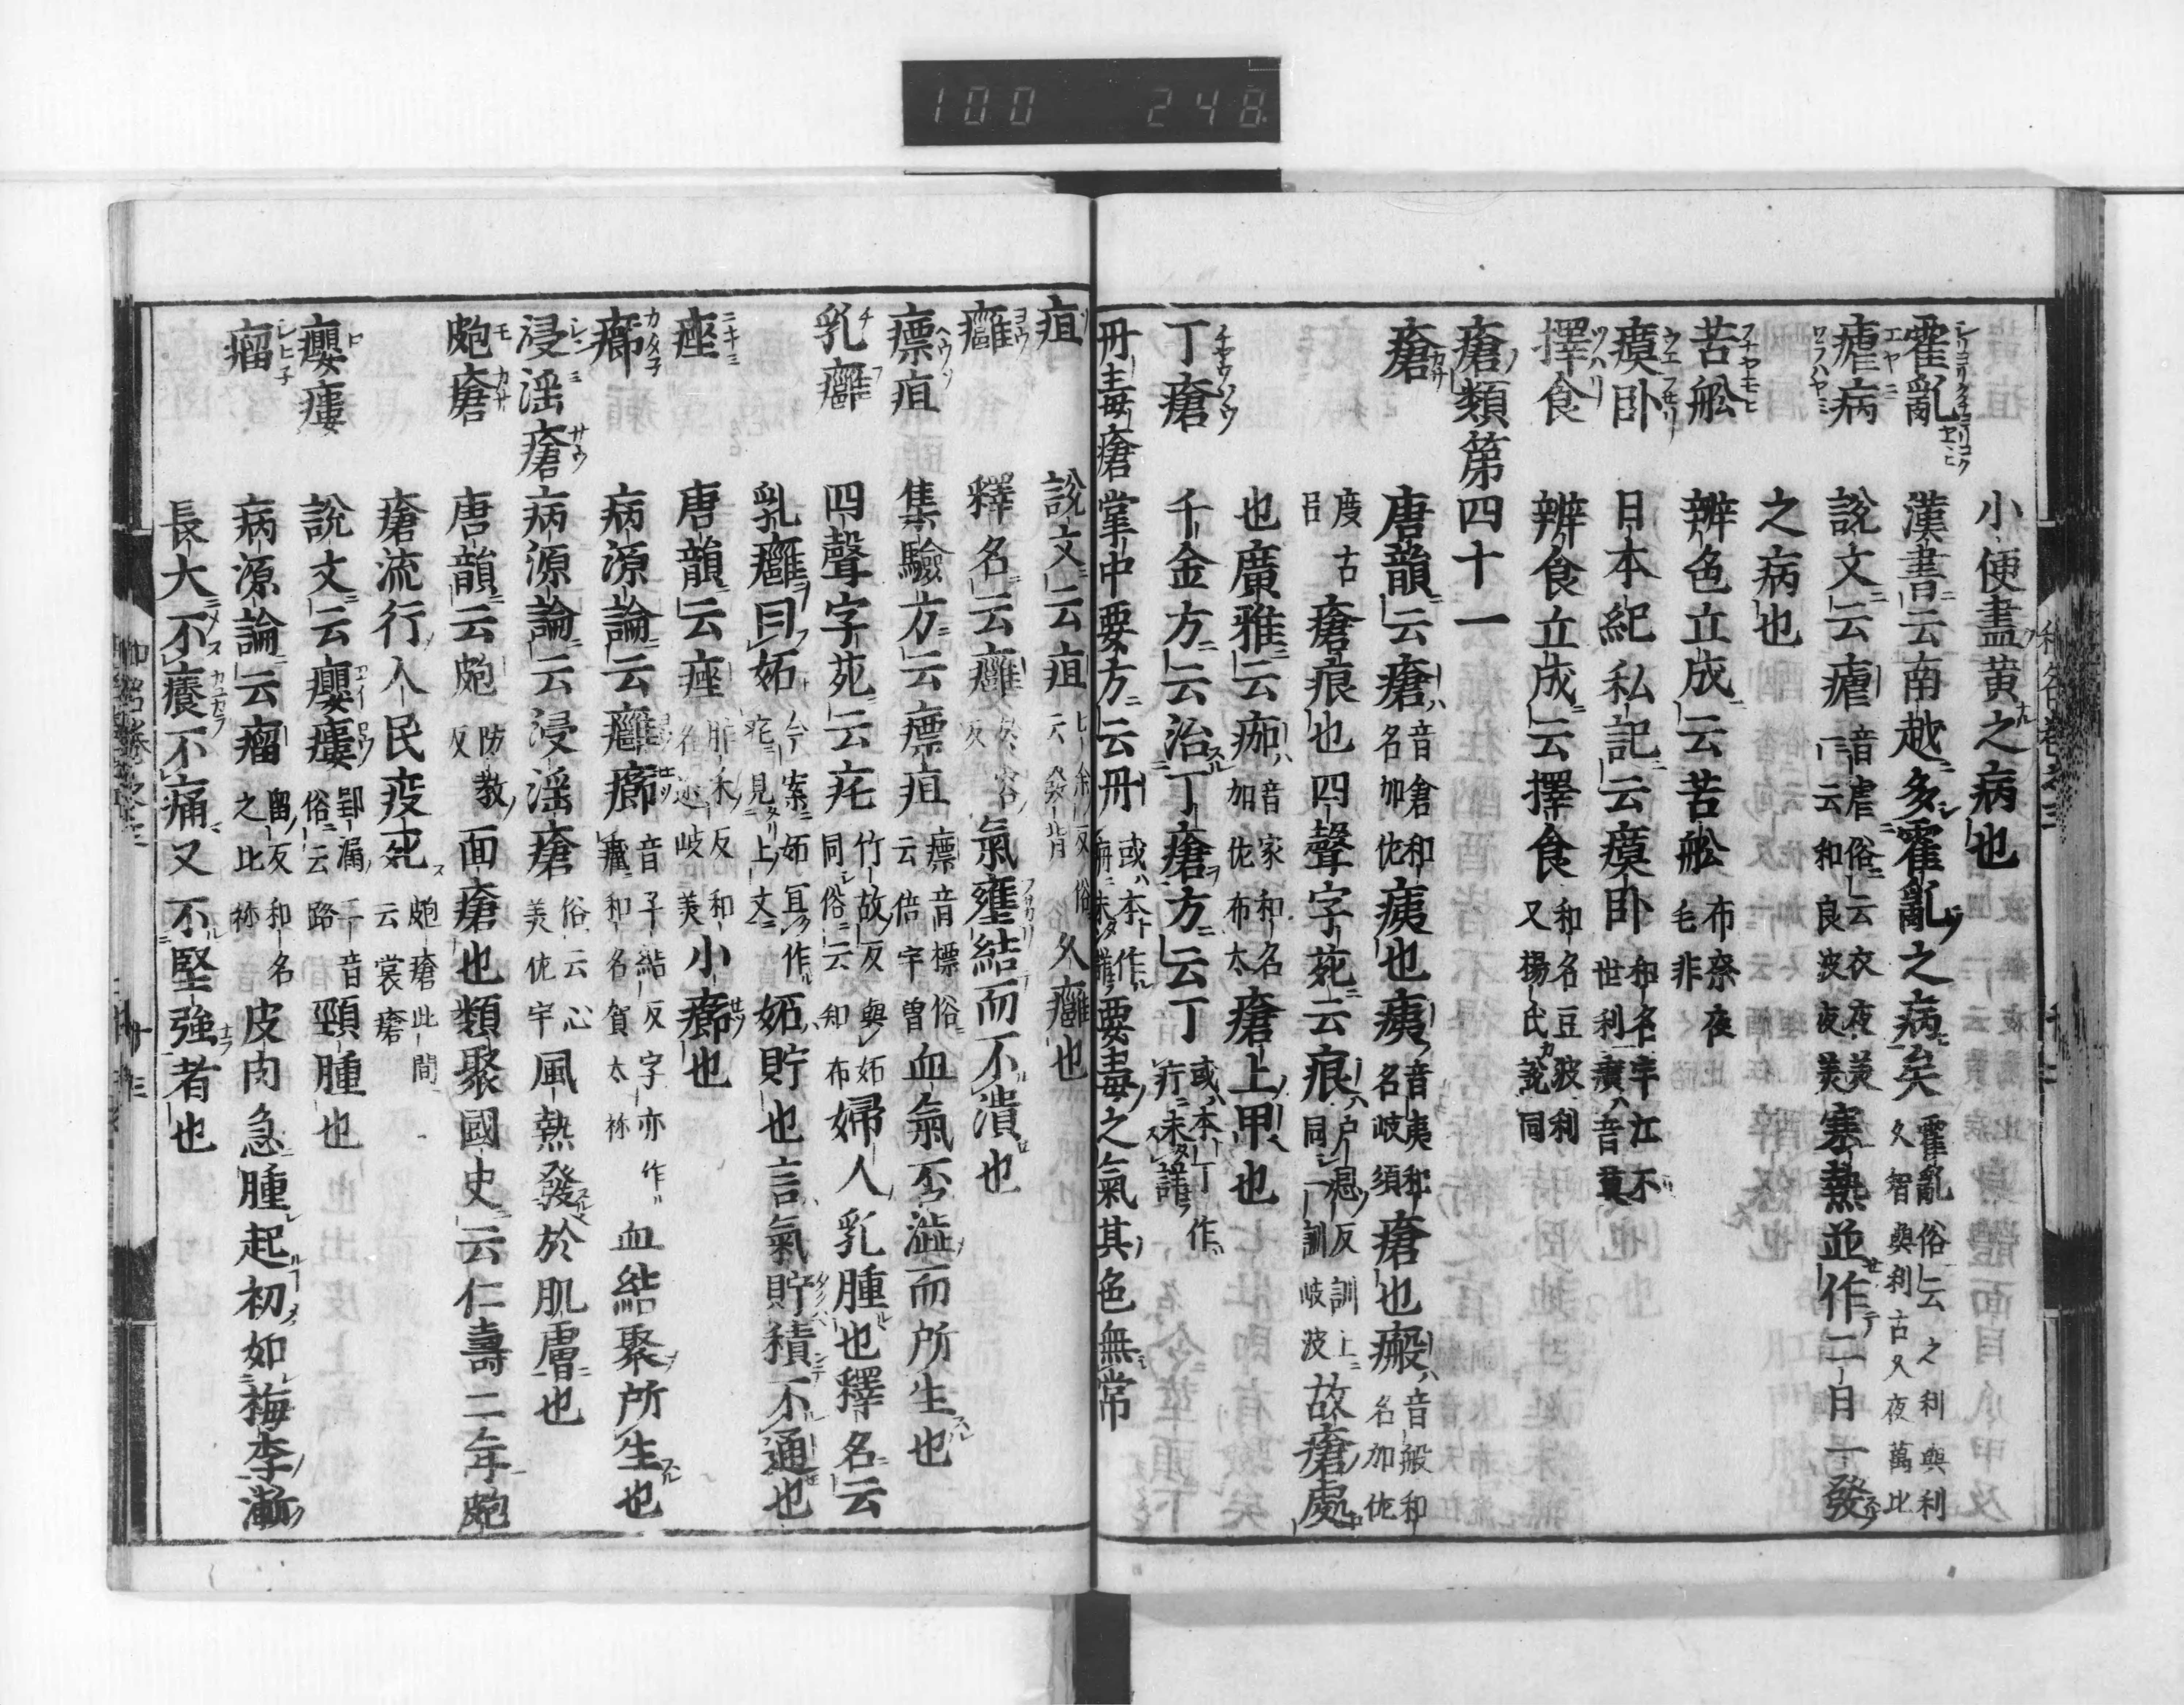 100 248
小便盡黄之病也
霍亂 漢書云南越多霍亂之病矣 霍亂俗云之利與利久智與利古又夜萬比
瘧病 說文云瘧 音虐俗云衣夜美一云和良波夜美 寒熱並作二日一發
之病也
苦舩 辨色立成云苦舩 布奈夜毛非
瘼卧 日本紀私記云瘼卧 和名宇江不世利瘼音莫
擇食 辨食立成云擇食 和名豆波利又楊氏說同
瘡類第四十一
瘡 唐韻云瘡 音倉和名加佐 痍也痍 音夷和名岐須 瘡也瘢 音般和名加佐
度古 瘡痕也四聲字苑云痕 戸恩反訓上同一訓岐波 故瘡處
也廣雅云痂 音家和名加佐布太 瘡上甲也
丁瘡 千金方云治丁瘡方云丁 或本丁作疔未詳
丹毒瘡 掌中要方云丹 或本作 要毒之氣其色無常
疽 說文云疽 七余反俗云發背 久癰也
癰 釋名云癰 於容反 氣壅結而不潰也
瘭疽 集驗方云瘭疽 瘭音標俗云倍宇曽 血氣否澁而所生也
乳癰 四聲字苑云㽱 竹故反與妬同俗云知布 婦人乳腫也釋名云
乳癰曰妬 今案妬冝作㽱見上文 妬貯也言氣貯積不通也
痤 唐韻云痤 昨禾反和名迩岐美 小癤也
癤 病源論云癰癤 音子結反字亦作 和名賀太祢 血結聚所生也
浸淫瘡 病源論云浸淫瘡 俗云心美佐宇 風熱發於肌膚也
皰瘡 唐韻云皰 防教反 面瘡也類聚國史云仁壽二年皰
瘡流行人民疫死 皰瘡此間云裳瘡
癭瘻 說文云癭瘻 郢漏二音俗云路 頸腫也
瘤 病源論云瘤 留反和名之比祢 皮肉急腫起初如梅李漸
長大不癢不痛又不堅強者也